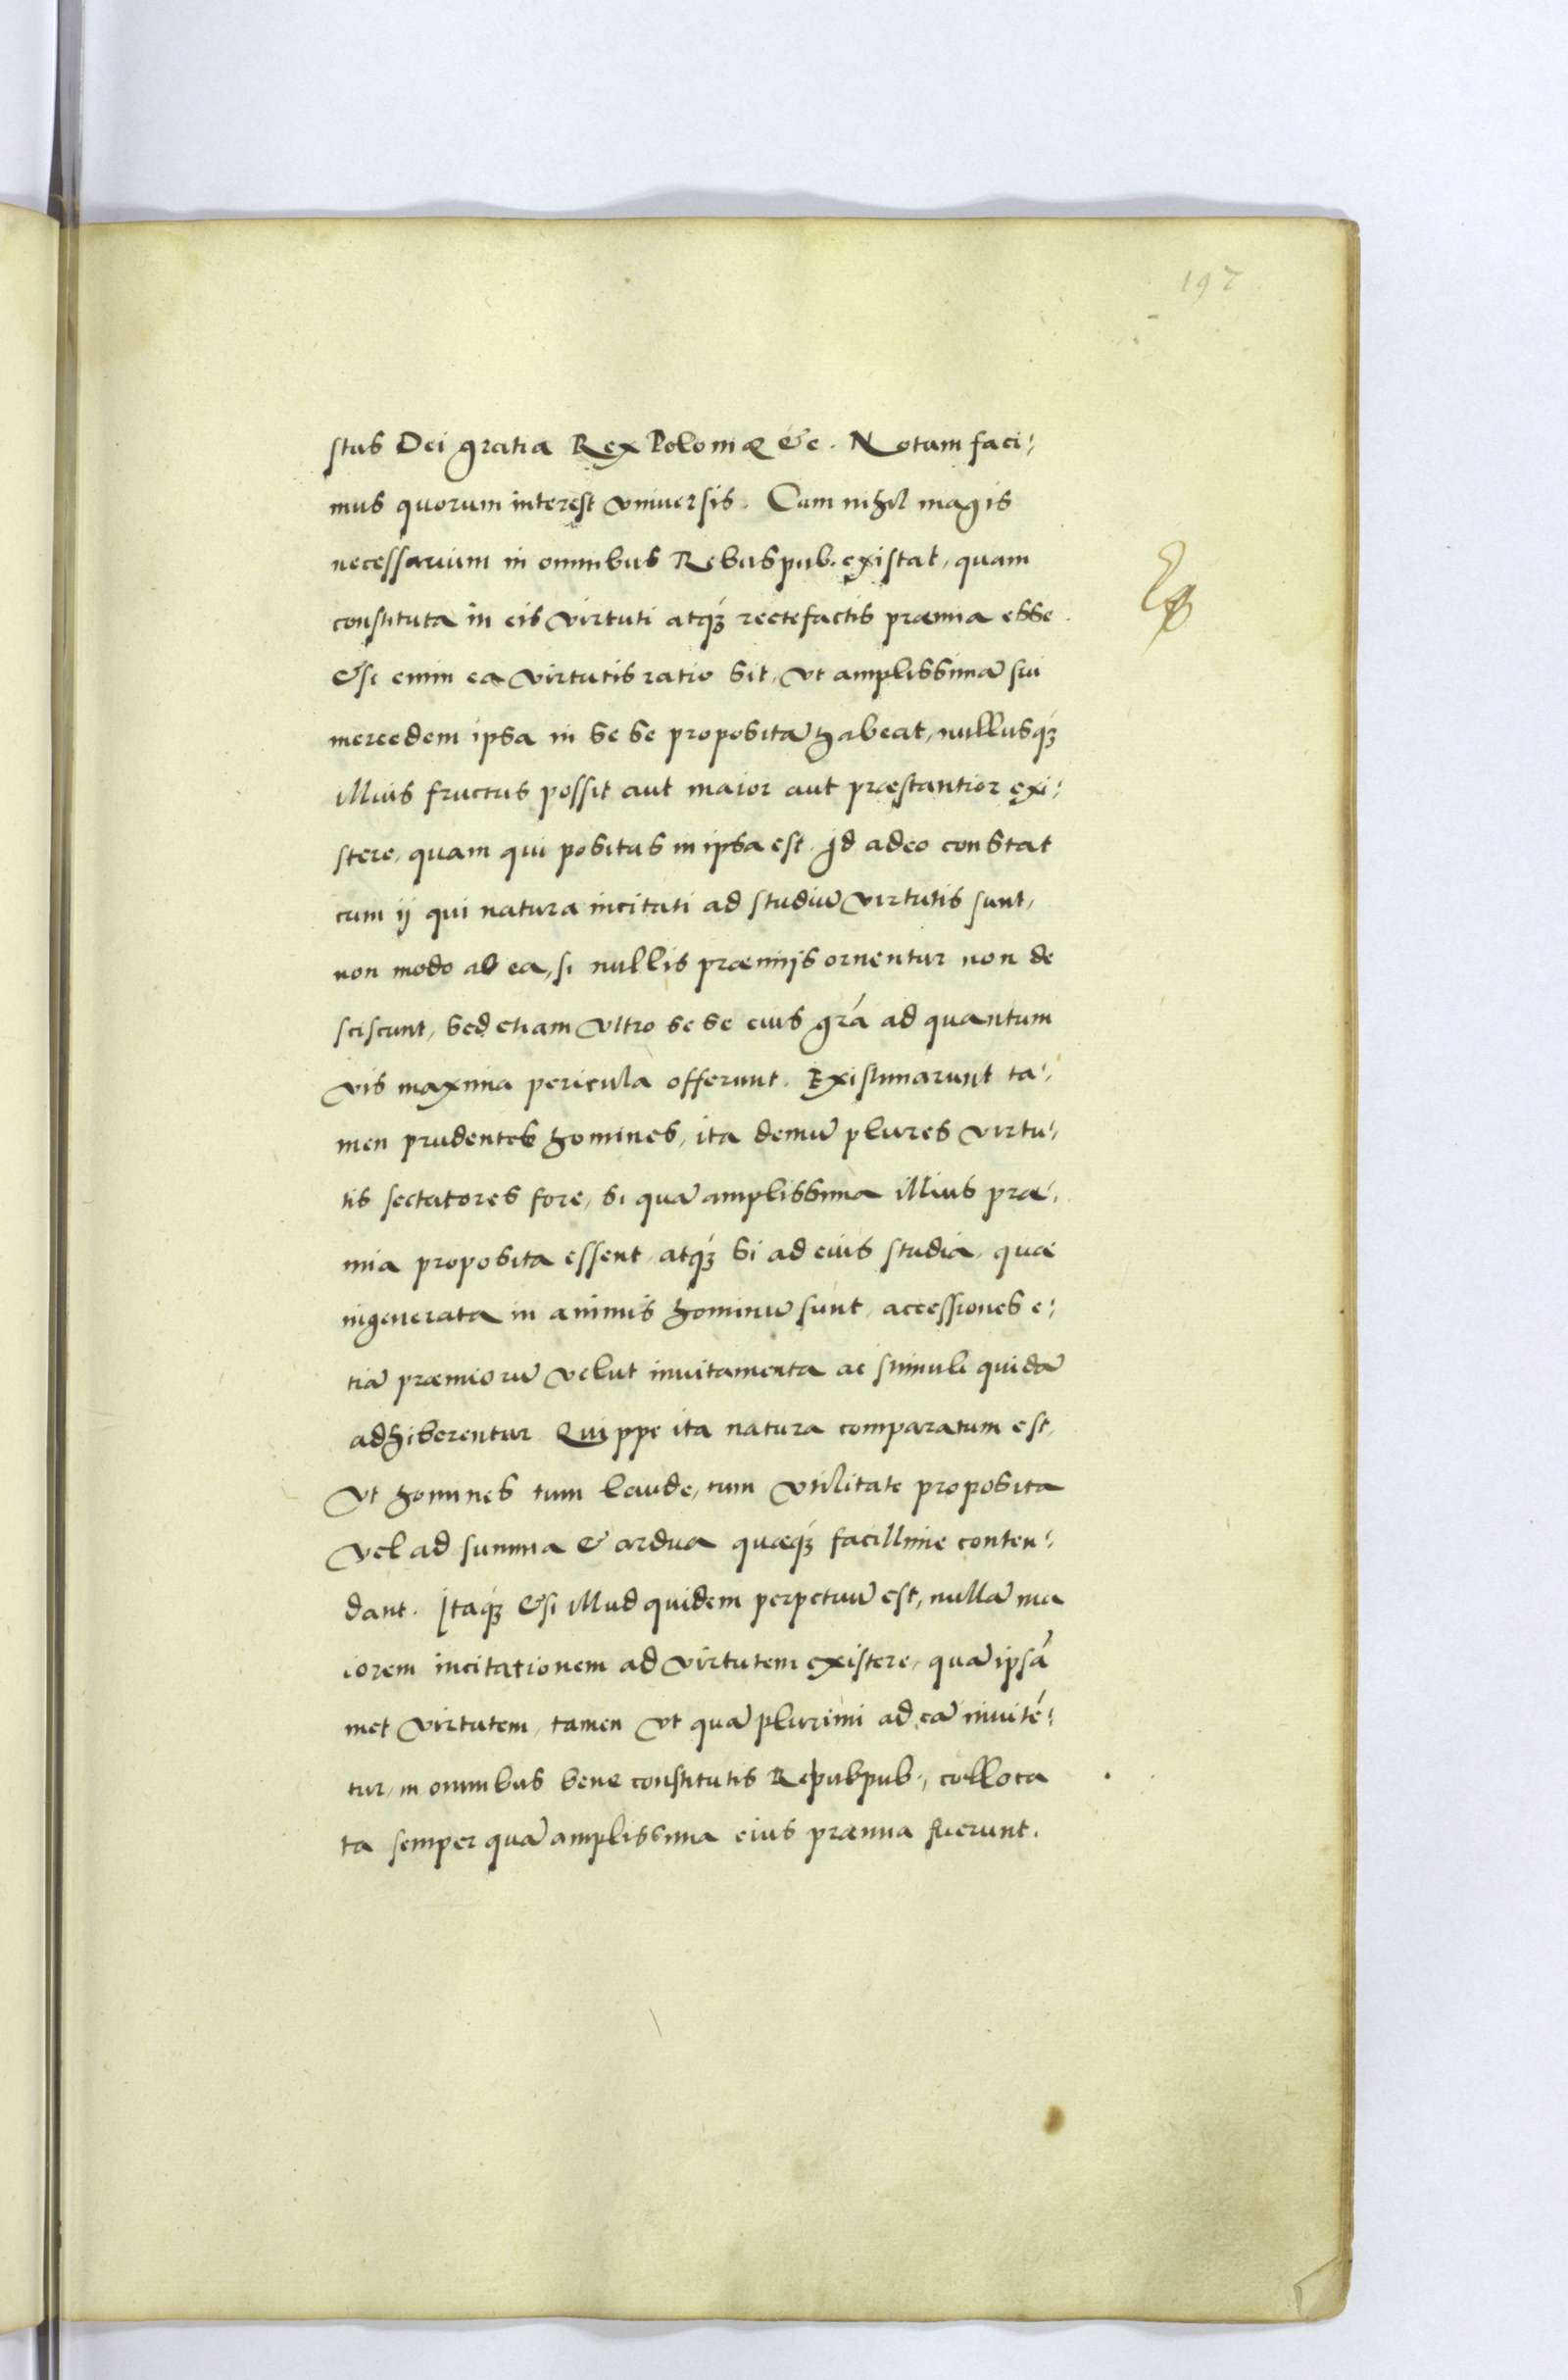 197
stus Dei gratia Rex Poloniæ &c. Notum faci:
mus quorum interest vniversis. Cum nihil magis
necessarium in omnibus Rebuspub. existat, quam
constituta in eis virtuti atq́ꝫ rectefactis præmia esse.
&si enim ea virtutis ratio sit, vt amplissimã sui
mercedem ipsa in se se propositã habeat, nullusq́ꝫ
illius fructus possit aut maior aut præstantior exi:
stere, quam qui positus in ipsa est. Id adeo constat
cum ij qui natura incitati ad studiũ virtutis sunt,
non modo ab ea, si nullis præmijs ornentur non de
sciscunt, sed etiam vltro se se eius grá ad quantum
vis maxima pericula offerunt. Existimarunt ta:
men prudentes homines, ita demũ plures virtu:
tis sectatores fore, si quã amplissima illius præ:
mia proposita essent, atq́ꝫ si ad eius studia, quæ
ingenerata in animis hominũ sunt, accessiones e:
tiã præmiorũ velut invitamenta ac stimuli quidã
adhiberentur. Quippe ita natura comparatum est,
Vt homines tum laude, tum vtilitate proposita
vel ad summa & ardua quæq́ꝫ facillime conten:
dant. Itaq́ꝫ &si illud quidem perpetuũ est, nullã ma
iorem incitationem ad virtutem existere, quã ipsã
met virtutem, tamen vt quã plurimi ad eã invitẽ:
tur, in omnibus bene constitutis Repubpub., colloca
ta semper quã amplissima eius præmia fuerunt.